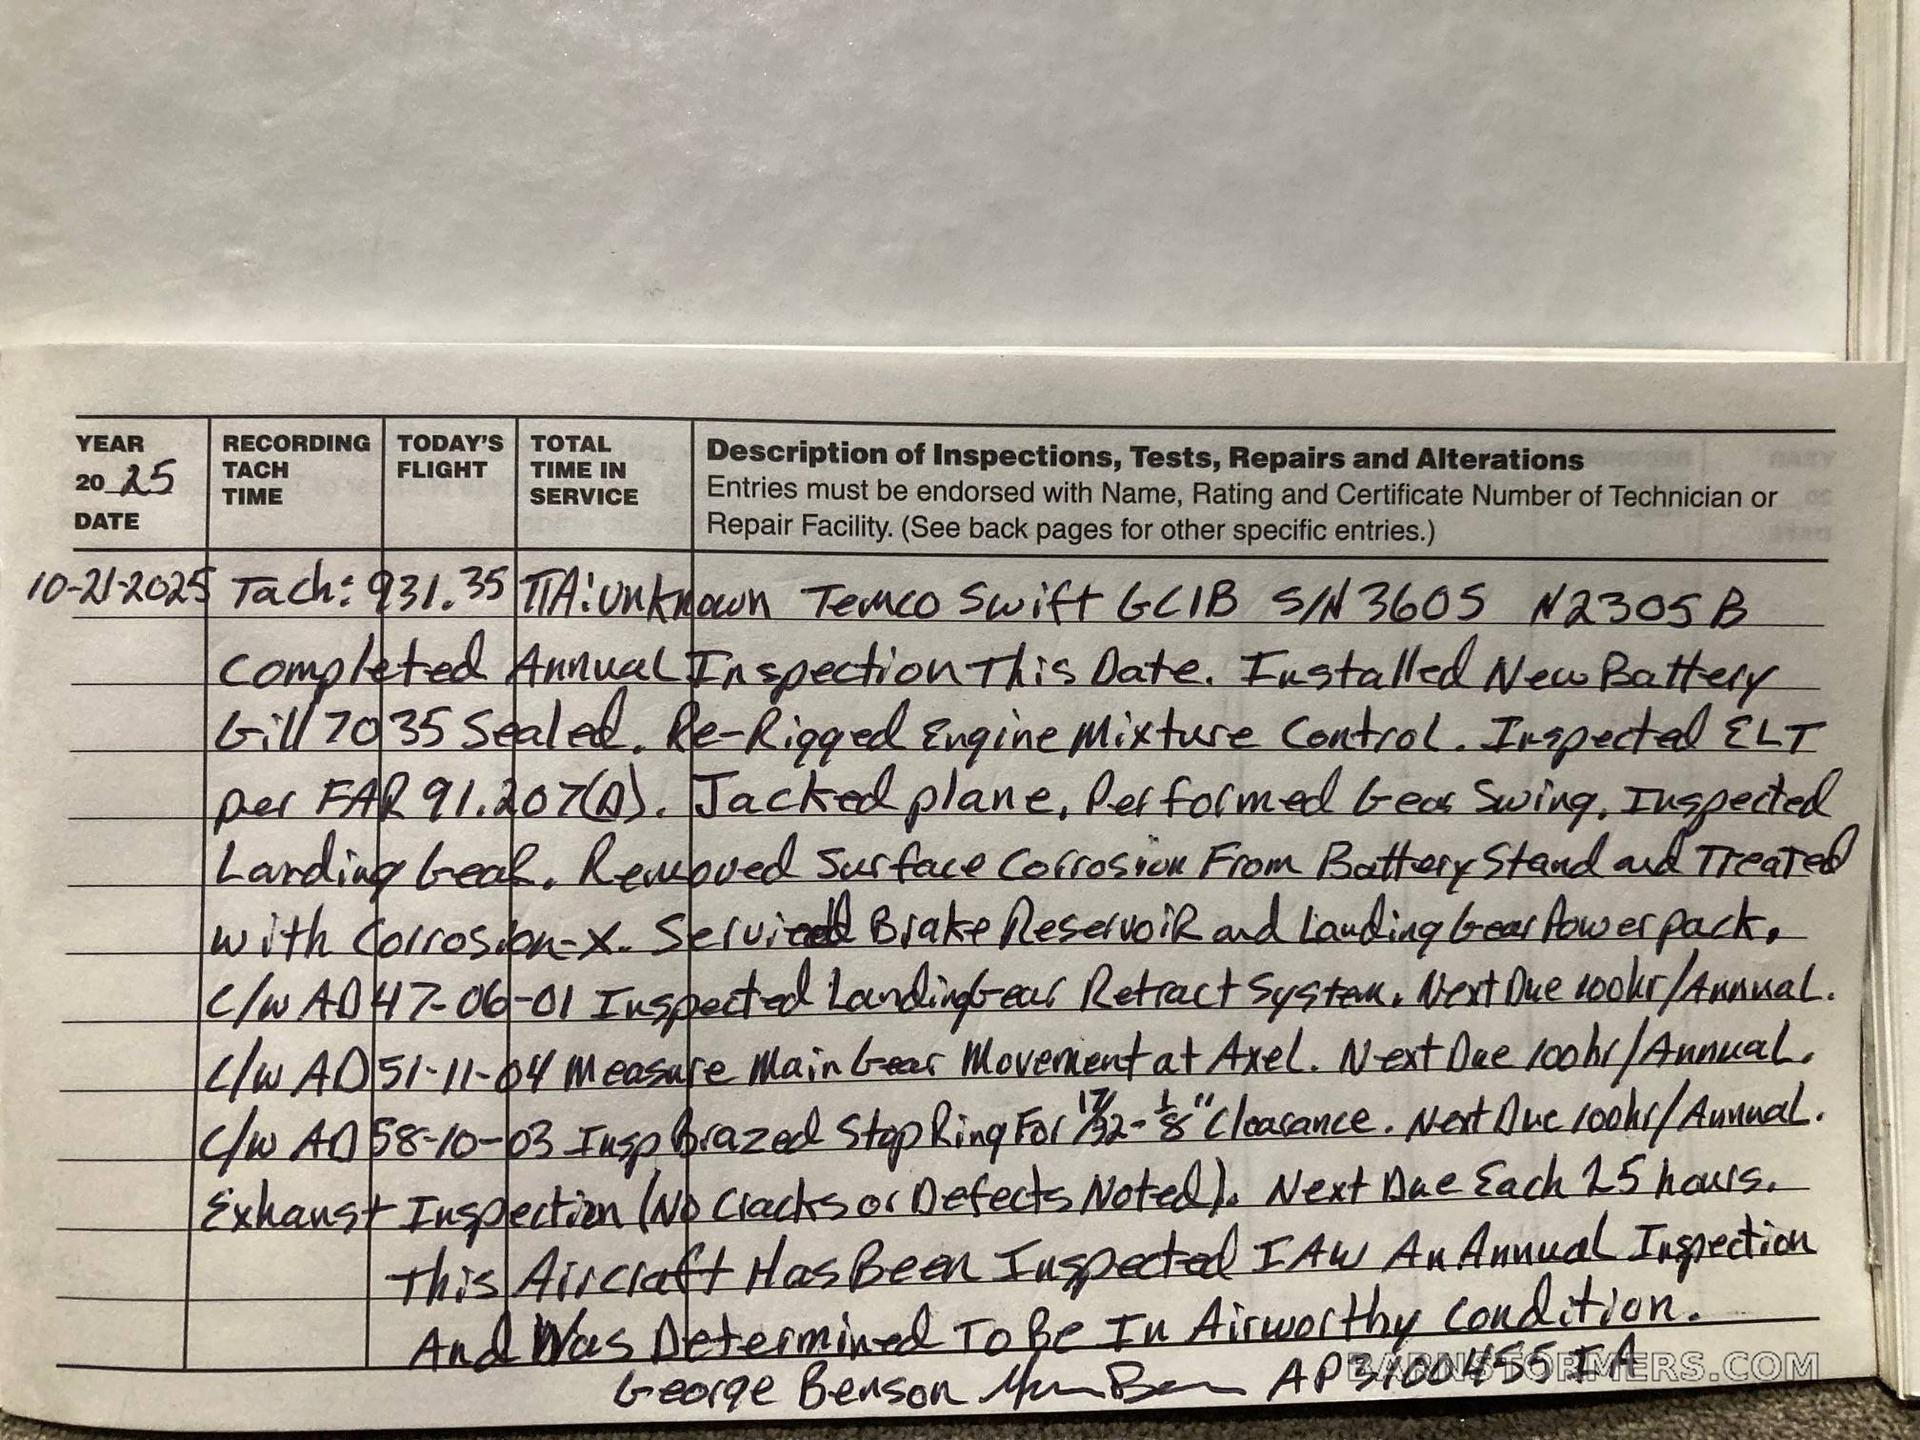 YEAR
20 25
DATE
RECORDING
TACH
TIME
TODAY'S
FLIGHT
TOTAL
TIME IN
SERVICE
Description of Inspections, Tests, Repairs and Alterations
Entries must be endorsed with Name, Rating and Certificate Number of Technician or
Repair Facility. (See back pages for other specific entries.)
10-21-2025 Tach: 931.35 TTA: unknown Temco Swift GC1B S/N 3605 N2305B
Completed Annual Inspection This Date. Installed New Battery
Gill 7035 Sealed. Re-Rigged Engine Mixture Control. Inspected ELT
per FAR 91.207(D). Jacked plane, Performed Gear Swing, Inspected
Landing Gear. Removed Surface Corrosion From Battery Stand and Treated
with Corrosion-X. Serviced Brake Reservoir and Landing Gear Power pack.
C/W AD 47-06-01 Inspected Landing Gear Retract System. Next Due 100hr/Annual.
C/W AD 51-11-04 Measure Main Gear Movement at Axel. Next Due 100hr/Annual.
C/W AD 58-10-03 Insp Brazed Stop Ring For 17/32 - 1/8" Clearance. Next Due 100hr/Annual.
Exhaust Inspection (No Cracks or Defects Noted). Next Due Each 25 hours.
This Aircraft Has Been Inspected IAW An Annual Inspection
And Was Determined To Be In Airworthy Condition.
George Benson AP3100455IA
BARNSTORMERS.COM